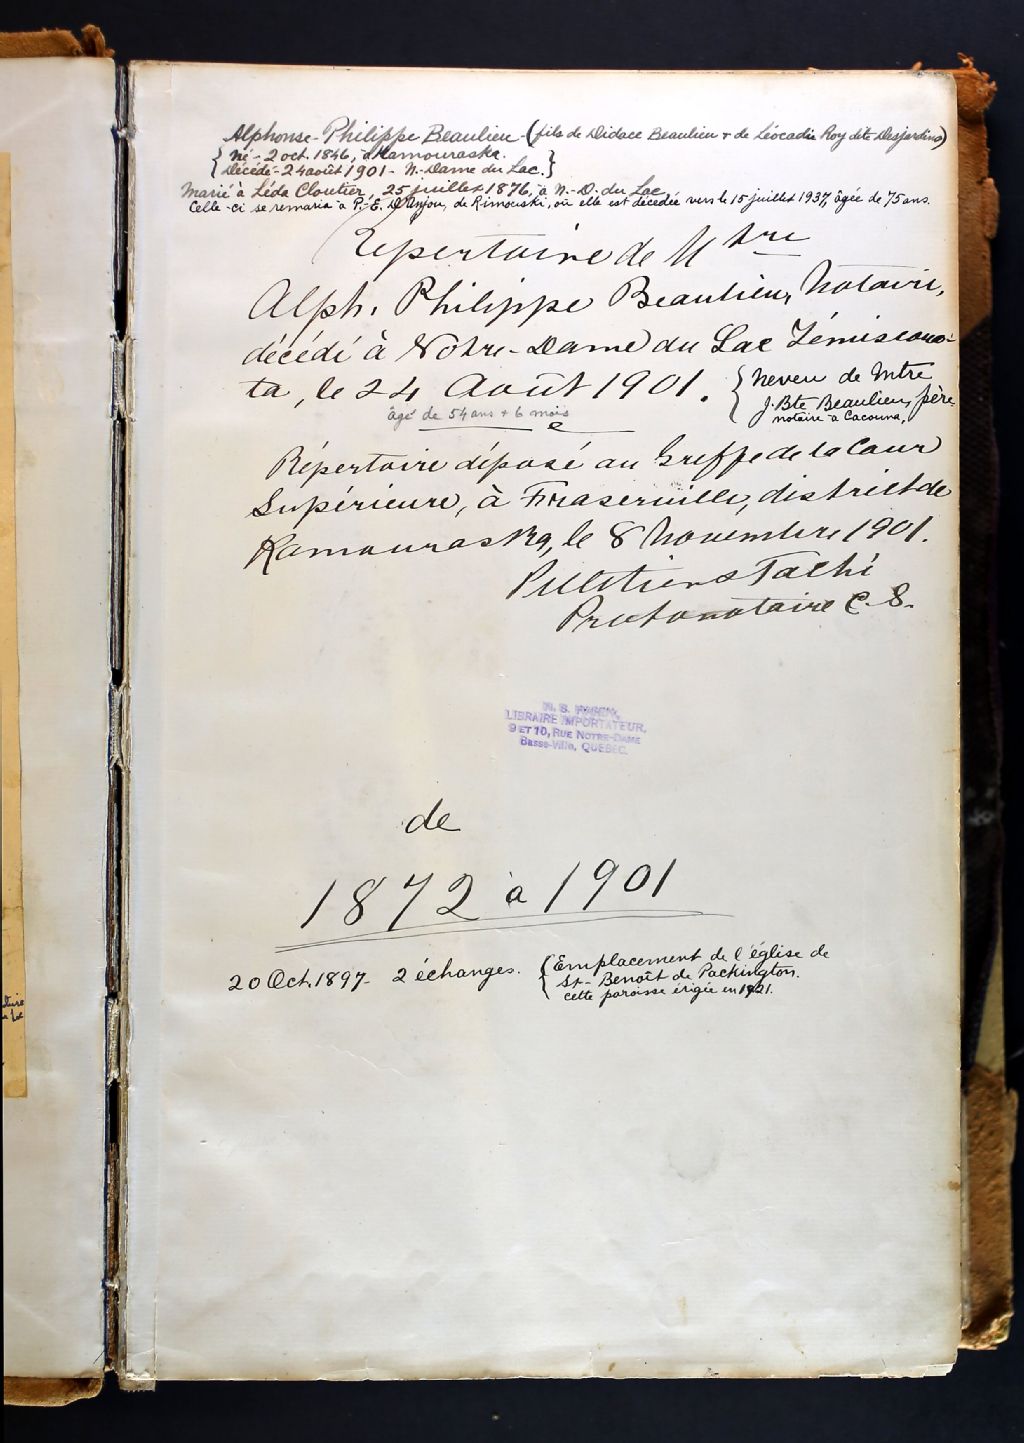 Alphonse-Philippe Beaulieu - (fils de Didace Beaulieu + de Léocadie Roy dite Desjardins)
{ Né - 2 oct. 1846, à Kamouraska.
{ Décédé - 24 août 1901 - N.-Dame du Lac. }
Marié à Léda Cloutier, 25 juillet 1876, à N.-D. du Lac
Celle-ci se remaria à P.-E. D'Anjou, de Rimouski, où elle est décédée vers le 15 juillet 1937, âgée de 75 ans.
Répertoire de Mtre
Alph. Philippe Beaulieu, Notaire,
décédé à Notre-Dame du Lac Témiscoua-
ta, le 24 Août 1901.
{ Neveu de Mtre
J. Bte Beaulieu, père
notaire à Cacouna,
âgé de 54 ans + 6 mois
Répertoire déposé au Greffe de la Cour
Supérieure, à Fraserville, district de
Kamouraska, le 8 Novembre 1901.
Pelletier & Taché
Protonotaire C. S.
LIBRAIRE IMPORTATEUR,
9 ET 10, RUE NOTRE-DAME
Basse-Ville, QUÉBEC.
de
1872 à 1901
20 Oct. 1897 - 2 échanges. { Emplacement de l'église de
St-Benoît de Packington.
cette paroisse érigée en 1921.